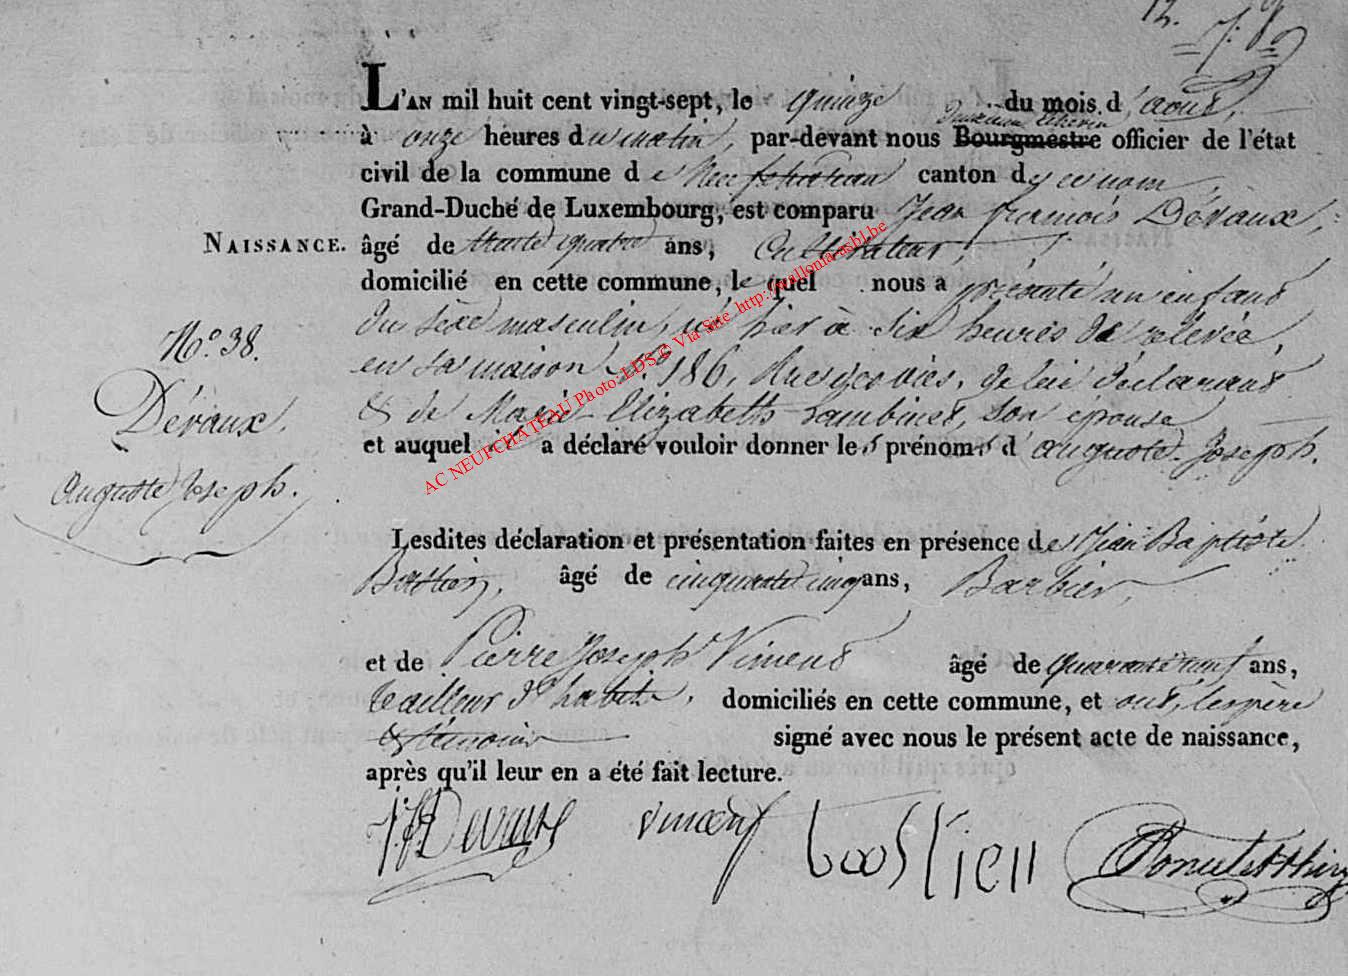 12.
L'AN mil huit cent vingt-sept, le quinze du mois d'aout,
à onze heures du matin, par-devant nous Bourgmestre officier de l'état
civil de la commune de Neufchateau canton de ce nom,
Grand-Duché de Luxembourg, est comparu Jean francois Dévaux,
NAISSANCE. âgé de trente quatre ans, Cultivateur,
domicilié en cette commune, le quel nous a présenté un enfant
du sexe masculin, né hier à six heures de relevée,
No. 38. en sa maison No. 186, de lui déclarant
Dévaux. & de Marie Elizabeth Lambinet, son épouse
et auquel il a déclaré vouloir donner les prénoms d'auguste Joseph.
Auguste Joseph.
Lesdites déclaration et présentation faites en présence de Jean Baptiste
Bastien, âgé de cinquante cinq ans, Barbier,
et de Pierre Joseph Vincent âgé de quarante neuf ans,
tailleur d'habits, domiciliés en cette commune, et ont, le père
& témoins signé avec nous le présent acte de naissance,
après qu'il leur en a été fait lecture.
JF Devaux vincent bastien
AC NEUFCHATEAU Photo: LDS © Via Site http://wallonia-asbl.be